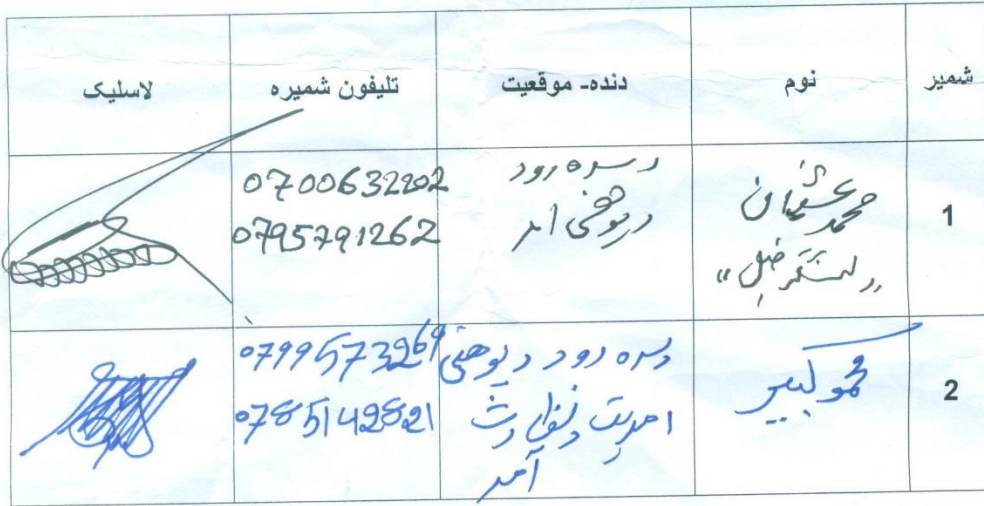 شمیر نوم دنده- موقعیت تلیفون شمیره لاسلیک
1
محمد عثمان
د سره رود
د پوهنی امر
0700632202
0795791262
2
د سره رود د پوهنی
امریت د
آمر
0799573269
0785142821